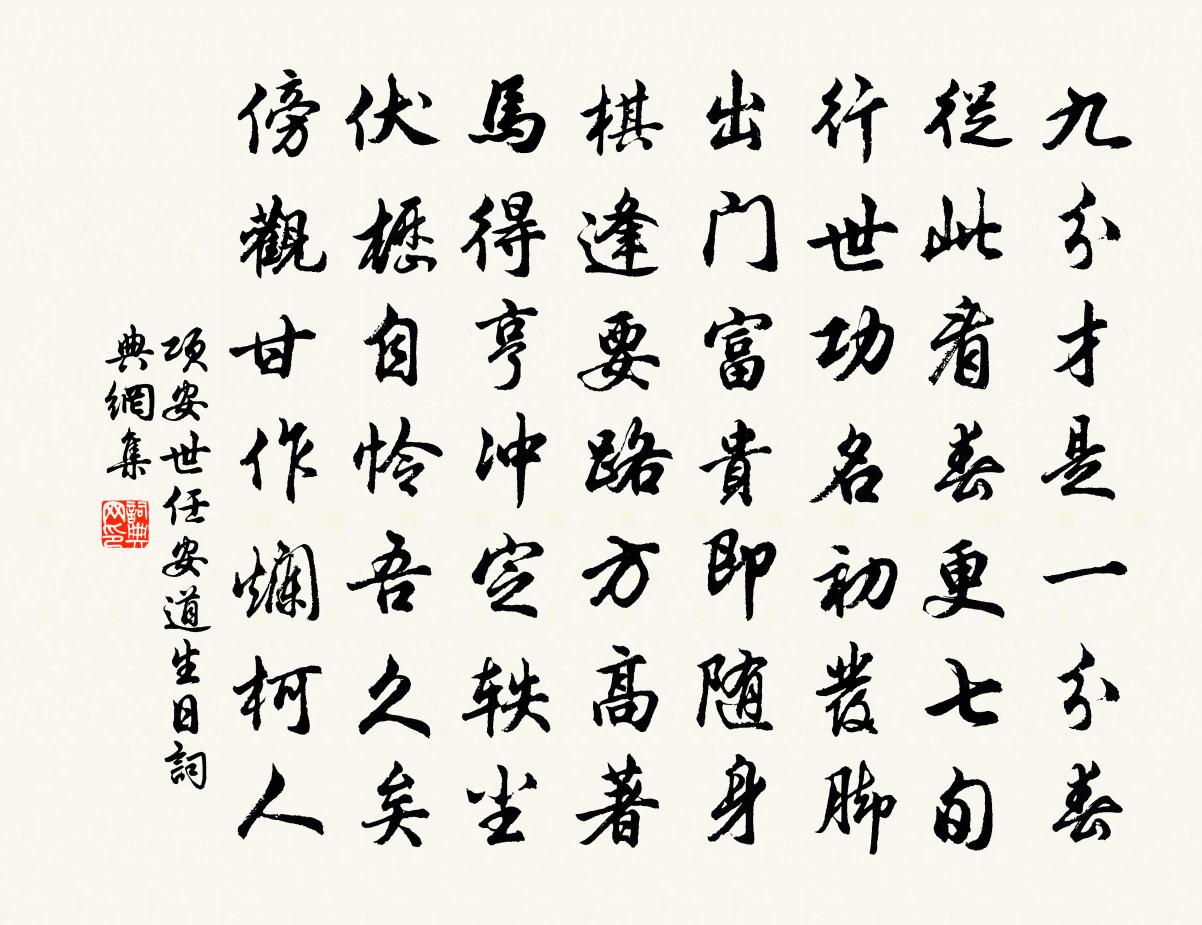 九分才是一分春
從此看春更七旬
行世功名初發脚
出门富貴即随身
棋逢要路方高著
馬得亨冲定軼尘
伏櫪自怜吾久矣
傍觀甘作爛柯人
项安世任安道生日詞
典網集
詞典
网印